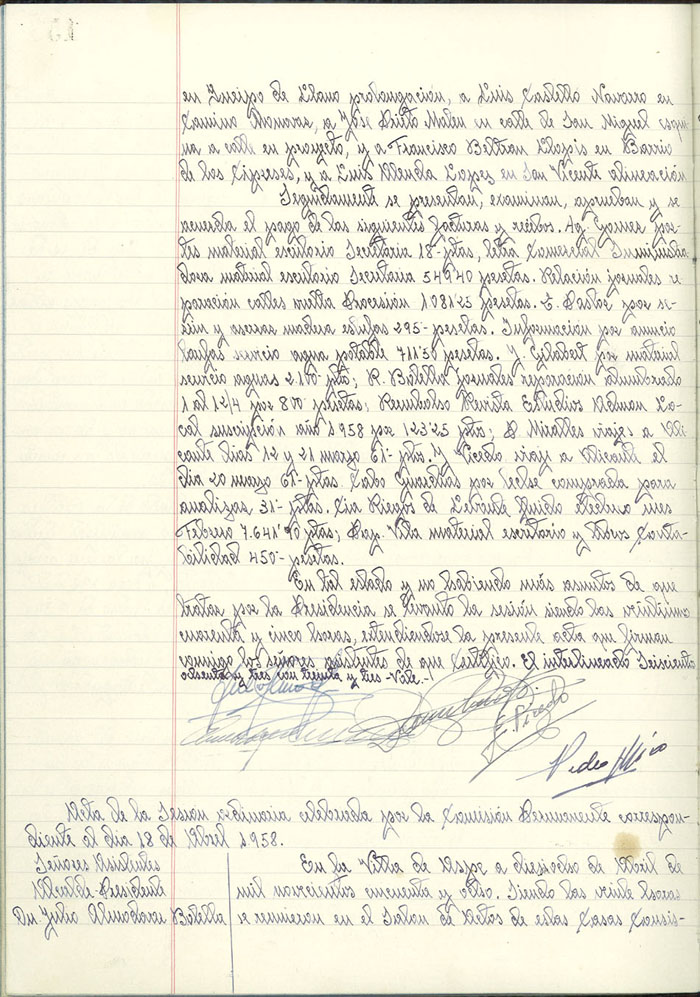 en Queipo de Llano prolongación, a Luis Castelló Navarro en
Camino Monovar, a José Prieto Malen en calle de San Miguel esqui
na a calle en proyecto, y a Francisco Beltran Llopis en Barrio
de los Cipreses, y a Luis Almela Lopez en San Vicente alineación
Seguidamente se presentan, examinan, aprueban y se
acuerda el pago de las siguientes facturas y recibos. Ag. Gomez por
tes material escritorio Secretaria 18- ptas, letra Comercial Suministra
dora material escritorio Secretaria 549'40 pesetas. Relación jornales re
paración calles vuelta Procesión 1081'25 pesetas. E. Pastor por se
rrin y aserrar madera estufas 295- pesetas. Informacion por anuncio
tarifas servicio agua potable 711'50 pesetas. J. Gilabert por material
servicio aguas 2.100 pts; R. Botella jornales reparación alumbrado
1 al 12/4 por 800 pesetas; Reembolso Revista Estudios Admon Lo
cal suscripción año 1958 por 123'25 ptas; P. Miralles viajes a Ali
cante dias 12 y 21 marzo 61- ptas. J. Vicedo viaje a Alicante el
dia 20 marzo 61- ptas Cabo Guardias por leche comprada para
analizar 31- ptas. Cia Riegos de Levante fluido electrico mes
Febrero 7.641'90 ptas; Vila material escritorio y libros Conta-
bilidad 450- pesetas.
En tal estado y no habiendo más asuntos de que
tratar por la Presidencia se levantó la sesión siendo las veintiuna
cuarenta y cinco horas, extendiendose la presente acta que firman
conmigo los señores asistentes de que certifico. El interlineado Seiscientos
ochenta y tres con treinta y tres- Vale.-
Pedro Miro
Acta de la Sesion ordinaria celebrada por la Comisión Permanente correspon-
diente al dia 18 de Abril 1958.
Señores Asistentes
Alcalde-Presidente
Dn Julio Almodovar Botella
En la Villa de Aspe a dieciocho de Abril de
mil novecientos cincuenta y ocho. Siendo las veinte horas
se reunieron en el Salon de Actos de estas Casas Consis-